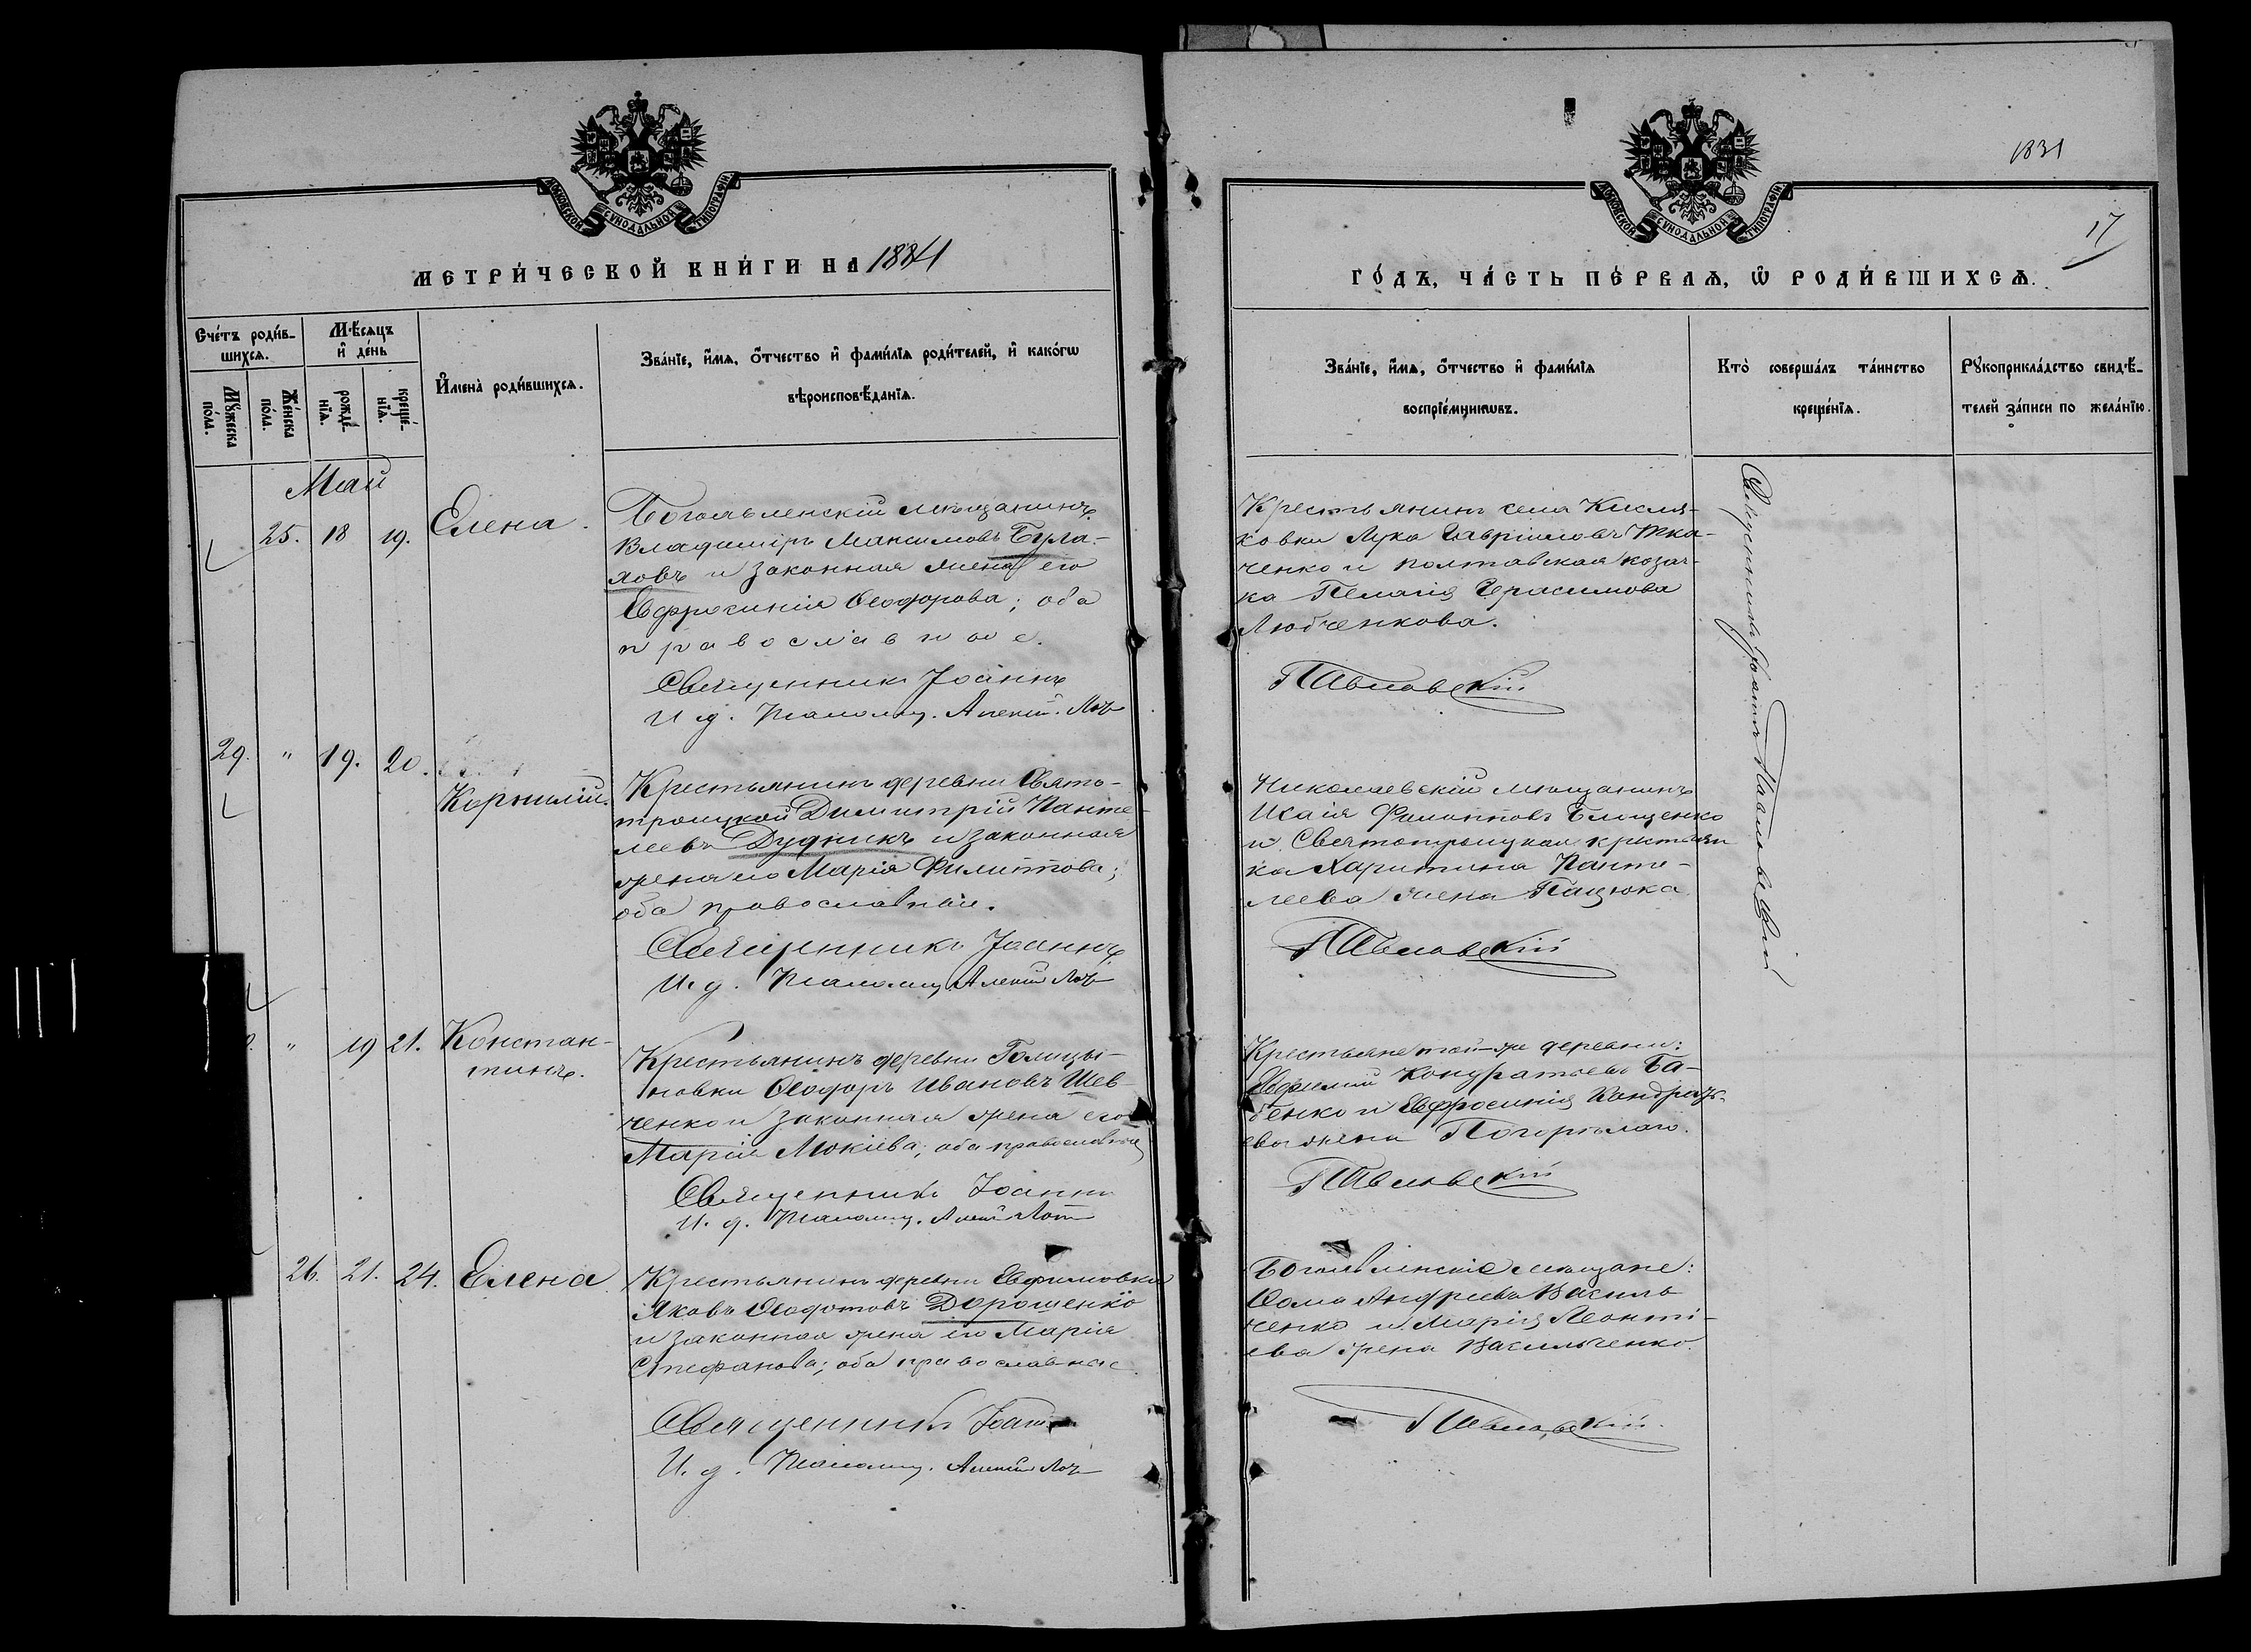 МОСКОВСКОЙ СѴНОДАЛЬНОЙ ТИПОГРАФІИ
МЕТРИ́ЧЕСКОЙ КНИ́ГИ НА 1881
Сче́тъ роди́в-
шихсѧ.
Мꙋ́жеска
по́ла.
Же́нска
по́ла.
Мѣ́сѧцъ
и҆ де́нь
рожде́-
нїѧ.
креще́-
нїѧ.
И҆мена̀ роди́вшихсѧ.
Зва́нїе, и҆́мѧ, ѻ҆́тчество и҆ фами́лїѧ роди́телей, и҆ како́гѡ
вѣроисповѣ́данїѧ.
Май
25. 18 19. Елена.
Богоявленскій мѣщанинъ
Владиміръ Максимовъ Була-
ховъ и законная жена его
Евфросинія Ѳеодорова; оба
православные.
Священникъ Іоаннъ
И. д. Псаломщ. Алексій
29. " 19. 20. Корнилій.
Крестьянинъ деревни Свято-
троицкой Димитрій Панте
леевъ Дудникъ и законная
жена его Марія Филиппова;
оба православные.
Священникъ Іоаннъ
И. д. Псаломщ. Алексій
" 19 21. Констан-
тинъ.
Крестьянинъ деревни Голицы-
новки Ѳеодоръ Ивановъ Шев-
ченко и законная жена его
Марія Мокіева; оба православные
Священникъ Іоаннъ
И. д. Псаломщ. Алексій
26. 21. 24. Елена
Крестьянинъ деревни Ефимовки
Яковъ Ѳеодотовъ Дорошенко
и законная жена его Марія
Стефанова; оба православные.
Священникъ Іоаннъ
И. д. Псаломщ. Алексій
1831
17
МОСКОВСКОЙ СѴНОДАЛЬНОЙ ТИПОГРАФІИ
ГО́ДЪ, ЧА́СТЬ ПЕ́РВАѦ, Ѽ РОДИ́ВШИХСѦ.
Зва́нїе, и҆́мѧ, ѻ҆́тчество и҆ фами́лїѧ
воспрїе́мникѡвъ.
Кто̀ соверша́лъ та́инство
креще́нїѧ.
Рꙋкоприкла́дство свидѣ́-
телей за́писи по жела́нїю.
Крестьянинъ села Кисля-
ковки Лука Гавріиловъ Тка-
ченко и полтавская козач-
ка Пелагія Герасимова
Любченкова.
Павловскій
Николаевскій мѣщанинъ
Исаія Филипповъ Блощенко
и Святотроицкая крестьян
ка Харитина Панте-
леева жена Пацюка
Павловскій
Крестьяне той-же деревни:
Евфимій Кондратьевъ Ба-
бенко и Евфросинія Кондрать-
ева жена Погорѣлаго.
Павловскій
Богоявленскіе мѣщане:
Ѳома Андреевъ Василь
ченко и Марія Леонті-
ева жена Васильченко.
Павловскій
Священникъ Іоаннъ Павловскій